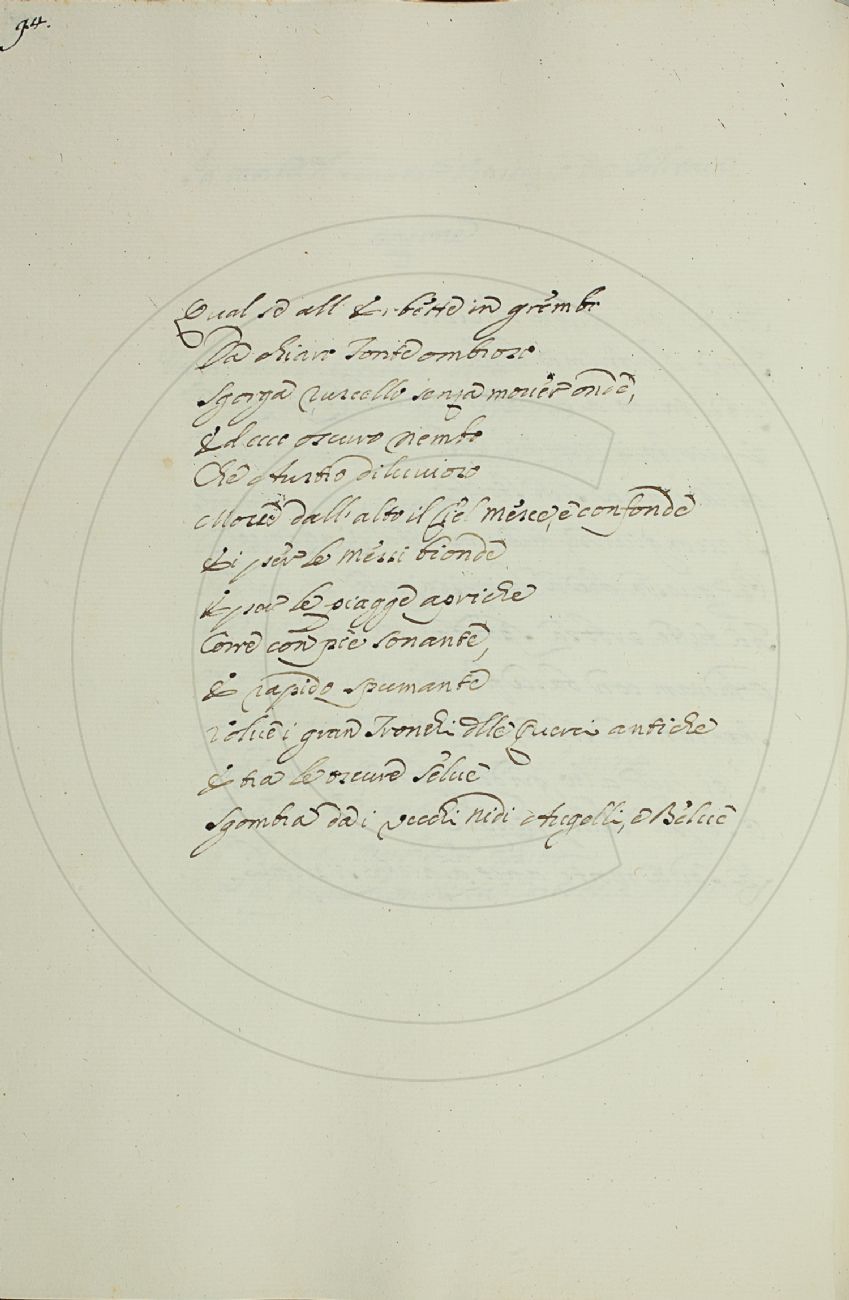 94.
Qual se all'Erbette in grembo
Da chiaro Fonte ombroso
Sgorga ruscello senza mover onde,
Ed ecco oscuro nembo
Che Austro diluvioso
Move dall'alto il Ciel mesce, e confonde
Ei per le messi bionde
E per le piagge apriche
Corre con piè sonante,
E rapido spumante
Volve i gran Tronchi delle Querci antiche
E tra le oscure selve
Sgombra da i vecchi nidi Augelli, e Belve